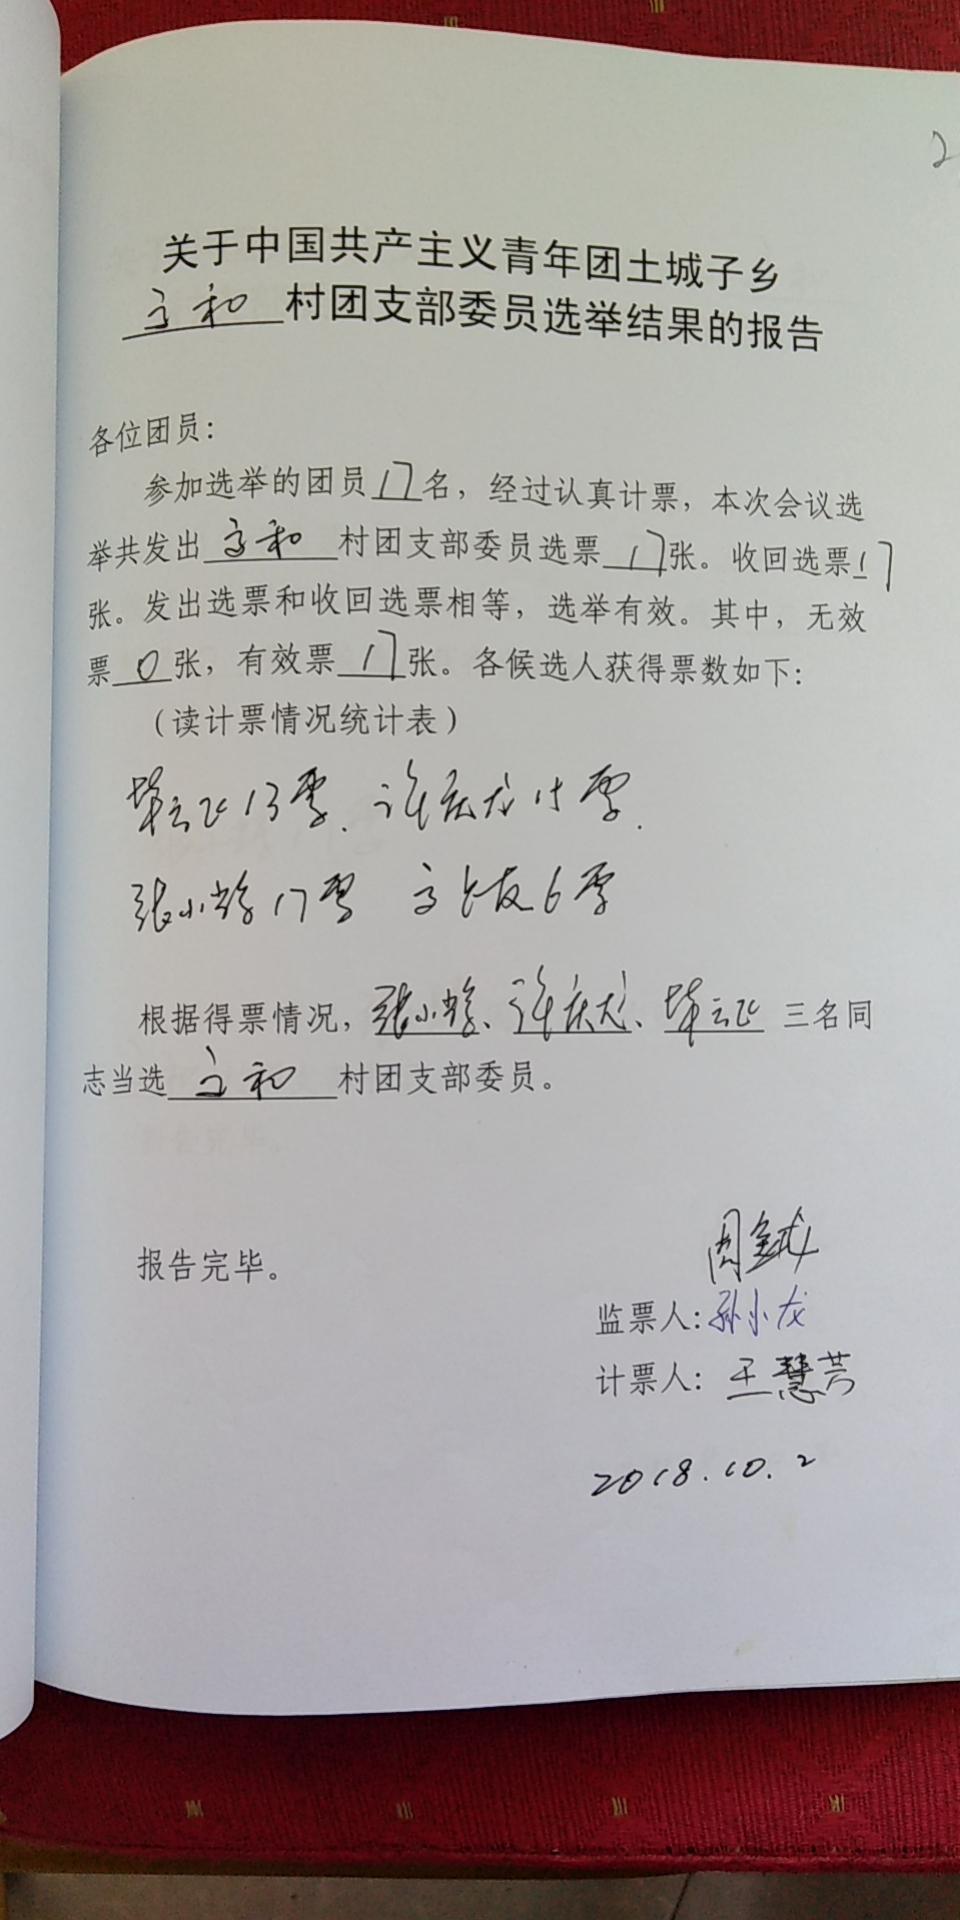 2
关于中国共产主义青年团土城子乡
村团支部委员选举结果的报告
各位团员：
参加选举的团员17名，经过认真计票，本次会议选
举共发出 村团支部委员选票17张。收回选票17
张。发出选票和收回选票相等，选举有效。其中，无效
票0张，有效票17张。各候选人获得票数如下：
（读计票情况统计表）
毕云飞13票、许庆龙15票.
张小 17票 6票
根据得票情况，张小 、许庆龙、毕云飞 三名同
志当选 村团支部委员。
报告完毕。
周
监票人：孙小龙
计票人：王慧芳
2018.10.2